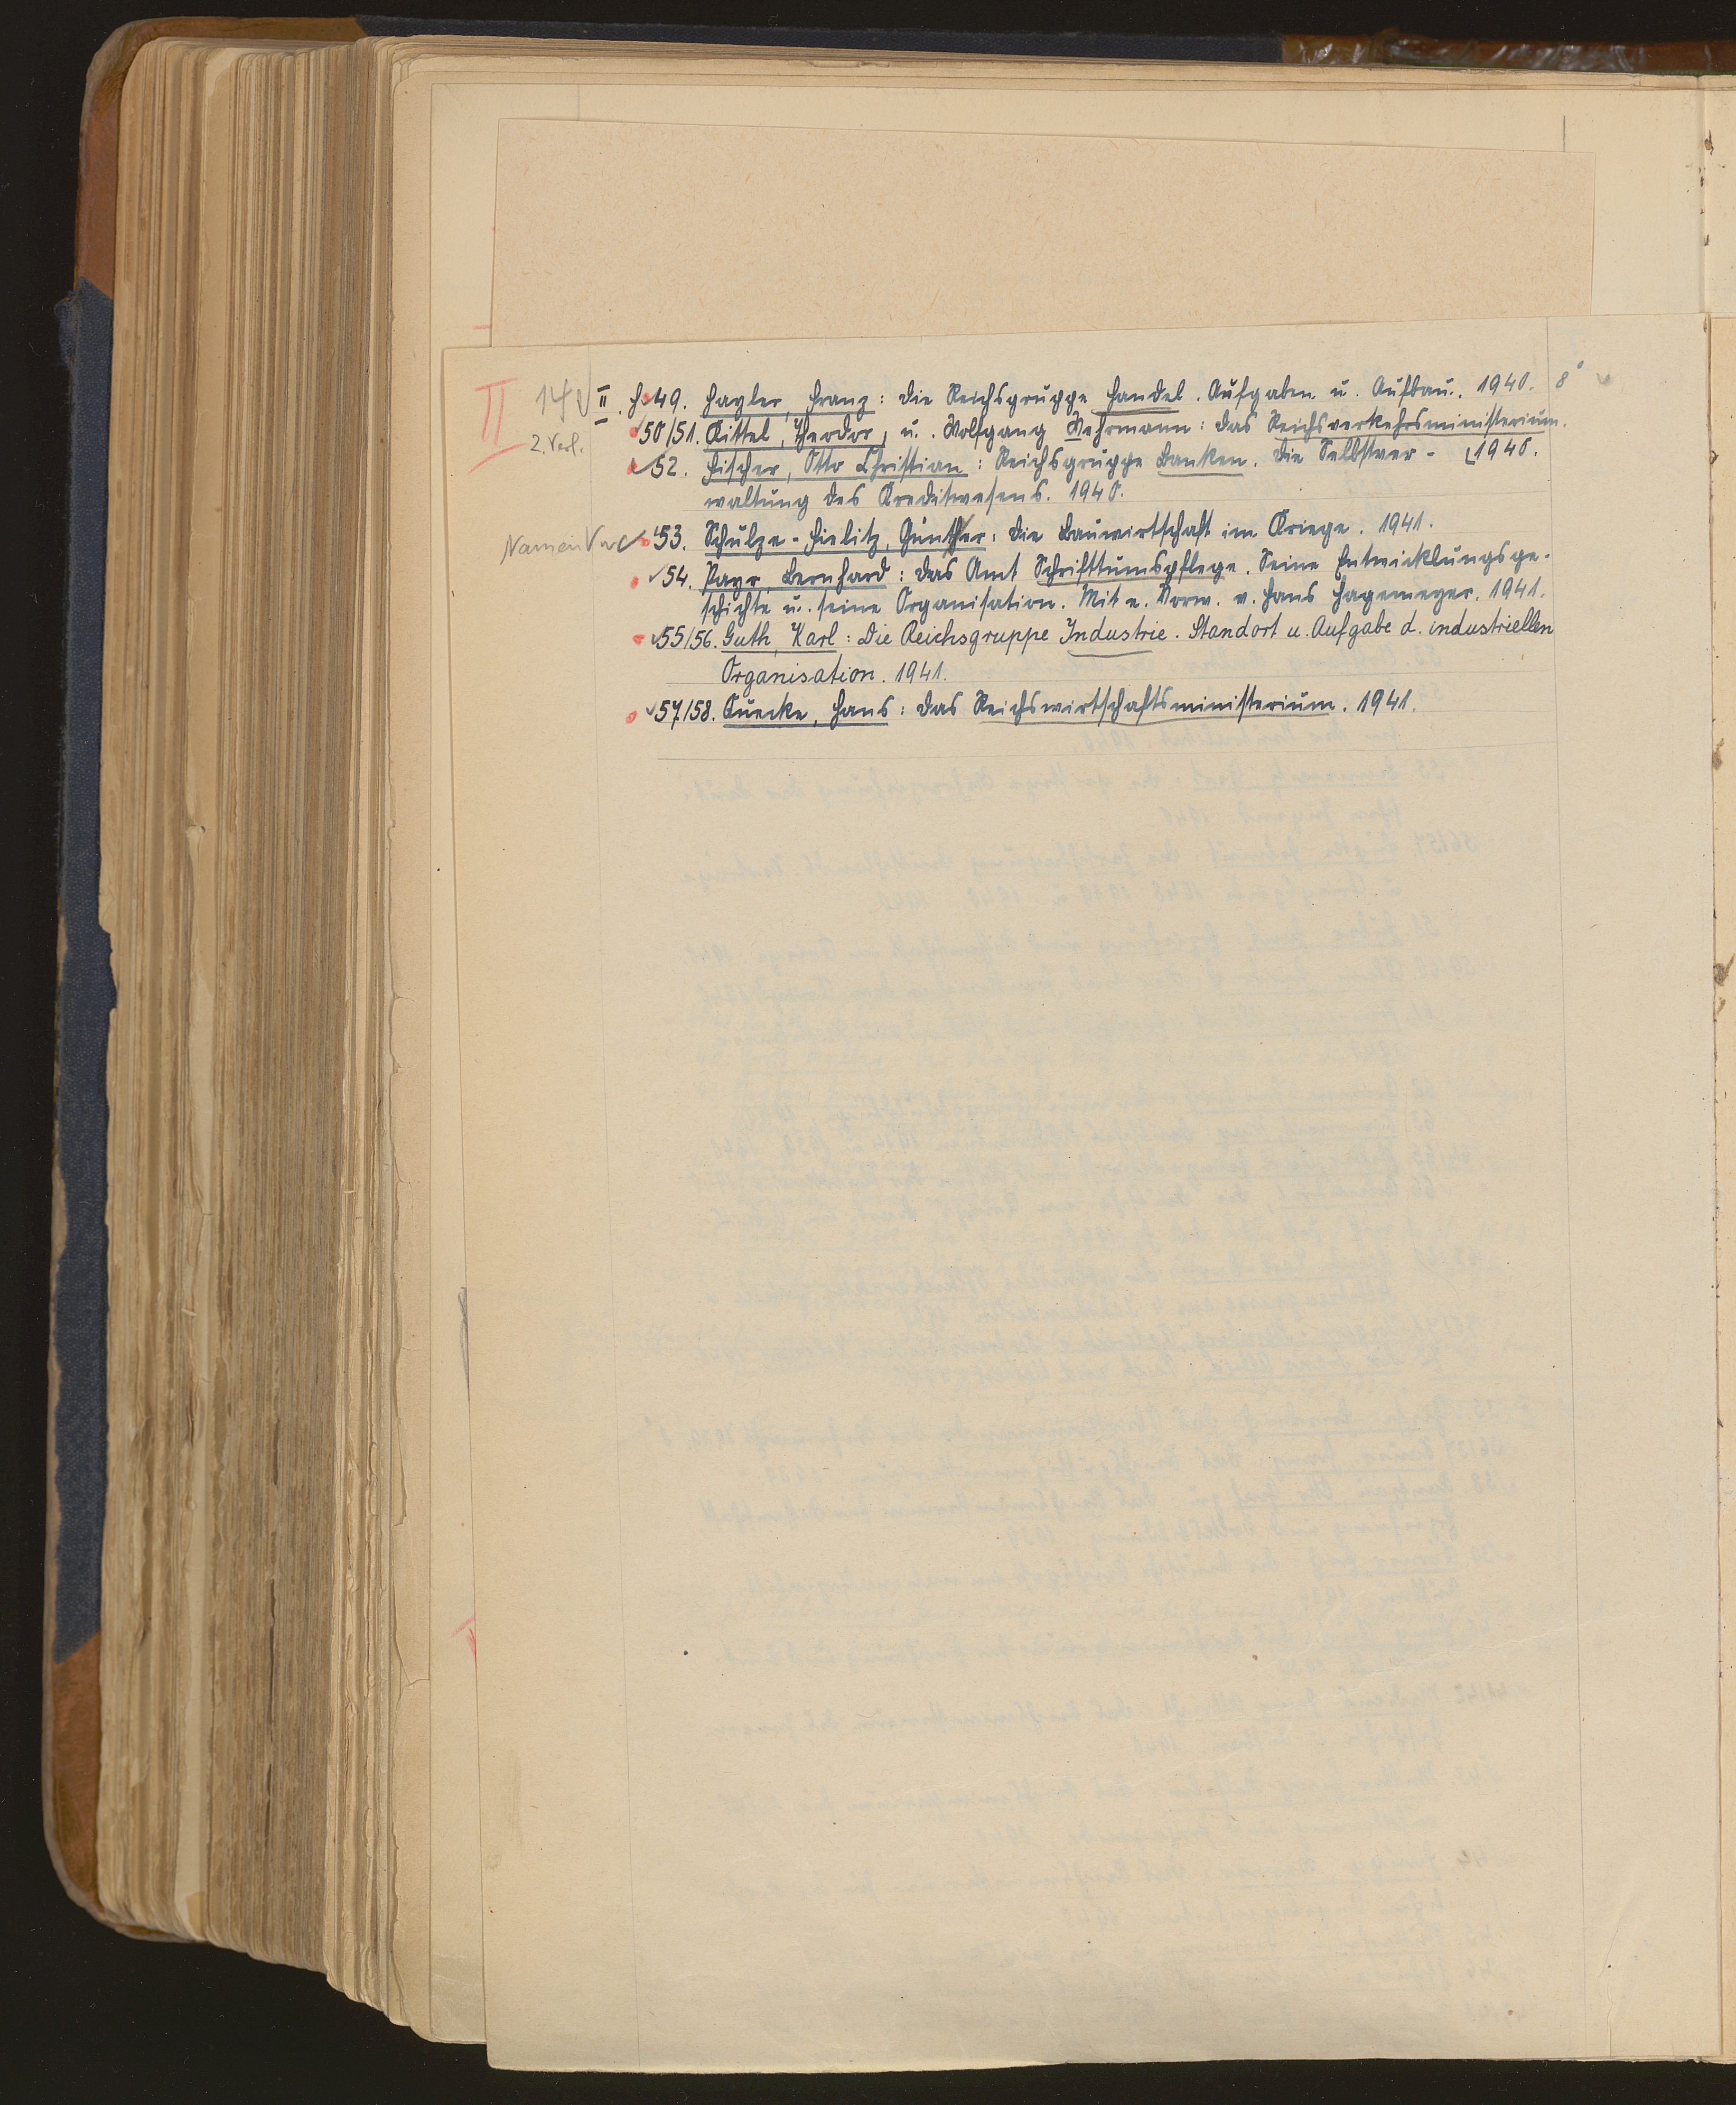 II 14 II. H. 49. Hayler, Franz: Die Reichsgruppe Handel. Aufgaben u. Aufbau. 1940. 8°
2. Verl. 50/51. Kittel, Theodor, u. Wolfgang Wehrmann: Das Reichsverkehrsministerium.
52. Fischer, Otto Christian: Reichsgruppe Banken. Die Selbstver- 1940.
waltung des Kreditwesens. 1940.
Namen 53. Schulze-Fielitz, Günther: Die Bauwirtschaft im Kriege. 1941.
54. Payr, Bernhard: Das Amt Schrifttumspflege. Seine Entwicklungsge-
schichte u. seine Organisation. Mit e. Vorw. v. Hans Hagemeyer. 1941.
55/56. Guth, Karl: Die Reichsgruppe Industrie. Standort u. Aufgabe d. industriellen
Organisation. 1941.
57/58. Quecke, Hans: Das Reichswirtschaftsministerium. 1941.